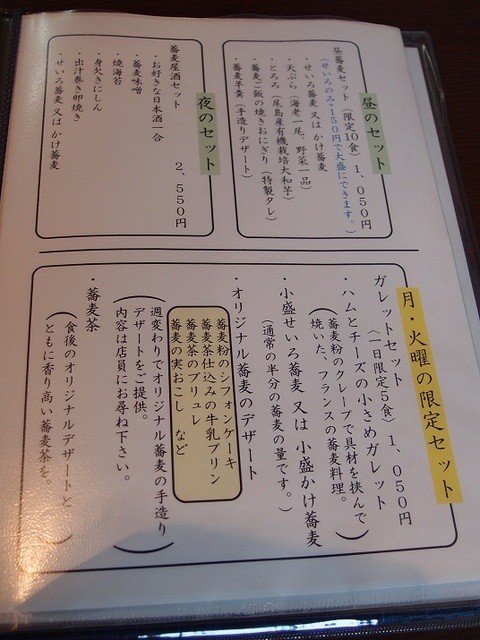 昼のセット
昼蕎麦セット(限定10食) 1、050円
(せいろのみ+150円で大盛にできます。)
・せいろ蕎麦 又は かけ蕎麦
・天ぷら(海老一尾、野菜一品)
・とろろ(尾島産有機栽培大和芋)
・蕎麦ご飯の焼きおにぎり(特製タレ)
・蕎麦羊羹(手造りデザート)
夜のセット
蕎麦屋酒セット 2、550円
・お好きな日本酒一合
・蕎麦味噌
・焼海苔
・身欠きにしん
・出汁巻き卵焼き
・せいろ蕎麦 又は かけ蕎麦
月・火曜の限定セット
ガレットセット
(一日限定5食) 1、050円
・ハムとチーズの小さめガレット
(蕎麦粉のクレープで具材を挟んで
焼いた、フランスの蕎麦料理。)
・小盛せいろ蕎麦 又は 小盛かけ蕎麦
(通常の半分の蕎麦の量です。)
・オリジナル蕎麦のデザート
蕎麦粉のシフォンケーキ
蕎麦茶仕込みの牛乳プリン
蕎麦茶のブリュレ
蕎麦の実おこし など
(週変わりでオリジナル蕎麦の手造り
デザートをご提供。
内容は店員にお尋ね下さい。)
・蕎麦茶
(食後のオリジナルデザートと
ともに香り高い蕎麦茶を。)